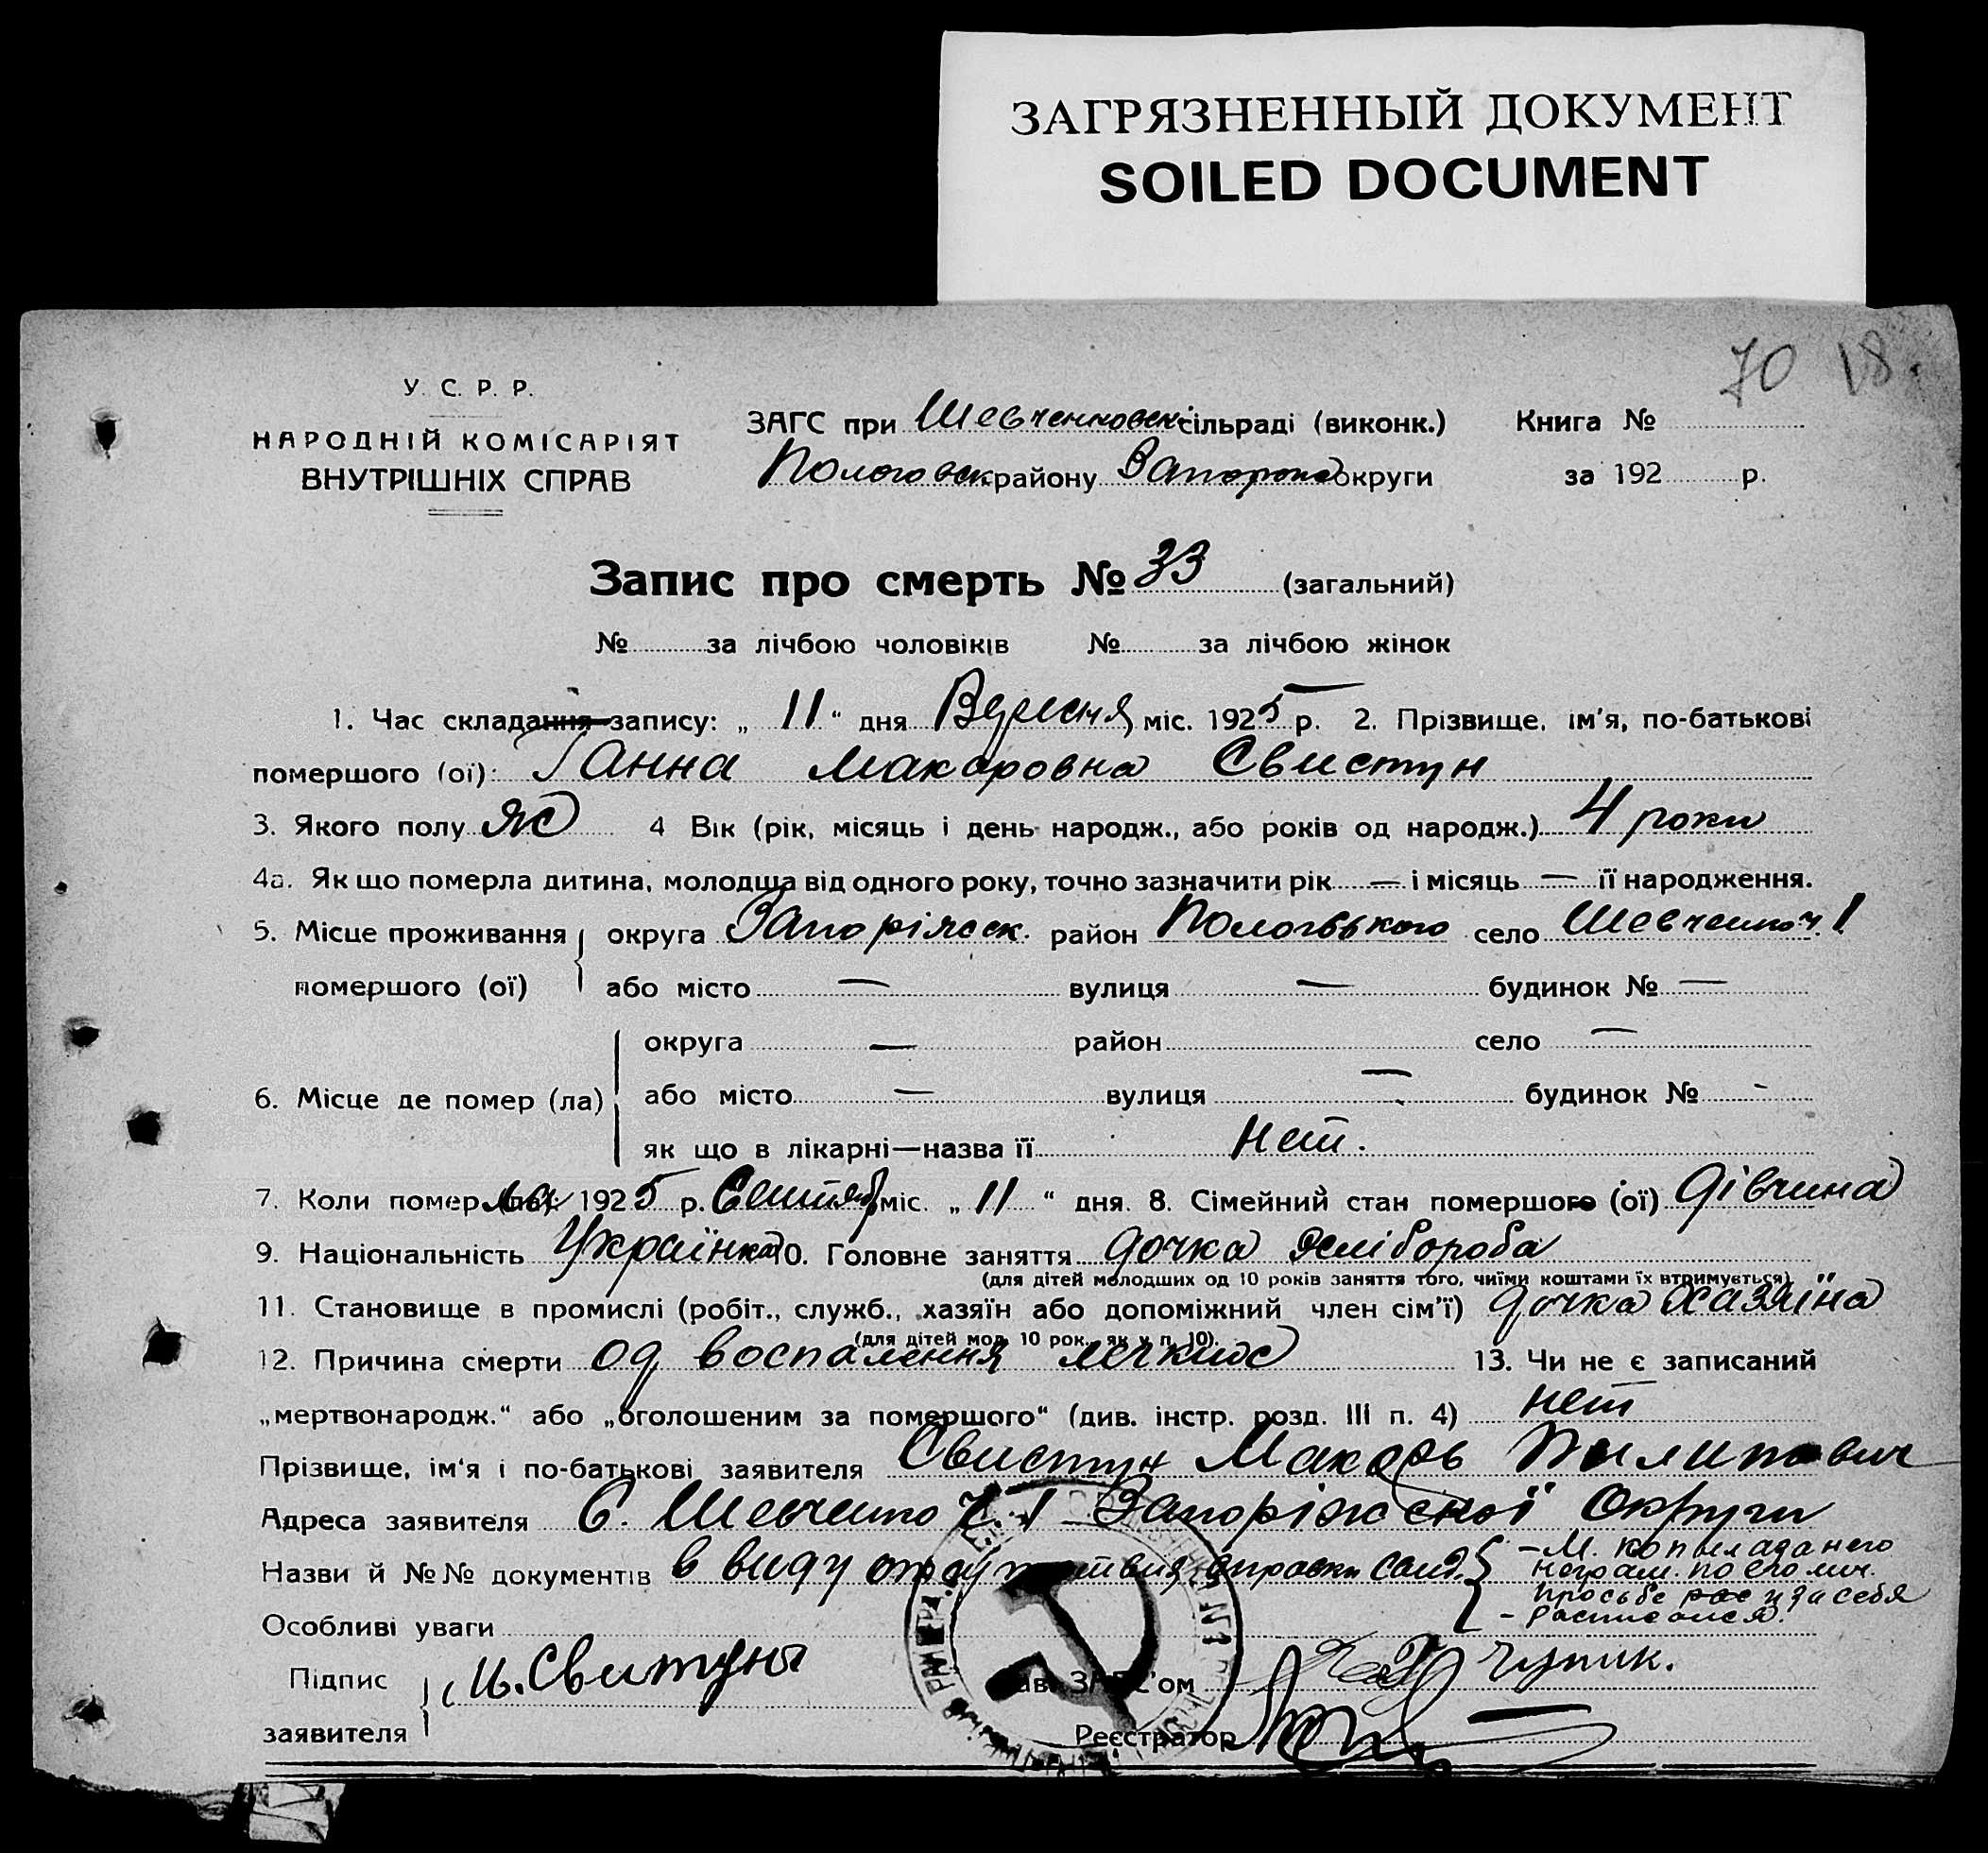 ЗАГРЯЗНЕННЫЙ ДОКУМЕНТ
SOILED DOCUMENT
70 18.
У. С. Р. Р.
НАРОДНІЙ КОМІСАРІЯТ
ВНУТРІШНІХ СПРАВ
ЗАГС при Шевченковск сільраді (виконк.) Книга №
Пологовск. району Запорож округи за 192 р.
Запис про смерть № 33 (загальний)
№ за лічбою чоловіків № за лічбою жінок
1. Час складання запису: „ 11 “ дня Вересня міс. 1925 р. 2. Прізвище, ім'я, по-батькові
помершого (ої): Ганна Макаровна Свистун
3. Якого полу ж 4 Вік (рік, місяць і день народж., або років од народж.) 4 роки
4а. Як що померла дитина, молодща від одного року, точно зазначити рік — і місяць — її народження.
5. Місце проживання округа Запоріжск. район Пологовького село Шевченко ч. 1
помершого (ої) або місто — вулиця — будинок № —
округа — район село —
6. Місце де помер (ла) або місто — вулиця — будинок № -
як що в лікарні—назва її нет.
7. Коли помер ла 1925 р. Сентяб міс. „ 11 “ дня. 8. Сімейний стан помершого (ої) дівчина
9. Національність Українка 10. Головне заняття дочка хлібороба
(для дітей молодших од 10 років заняття того, чиїми коштами їх втримується)
11. Становище в промислі (робіт., служб., хазяїн або допоміжний член сім'ї) дочка хазяїна
(для дітей мол. 10 рок., як у п. 10).
12. Причина смерти од воспалення легких 13. Чи не є записаний
„мертвонародж.“ або „оголошеним за помершого“ (див. інстр. розд. III п. 4) нет
Прізвище, ім'я і по-батькові заявителя Свистун Макарь Пилипович
Адреса заявителя С. Шевченко ч. 1 Запоріжської Округи
Назви й №№ документів в виду отсутствия справки
неграм. по его лич.
просьбе и за себя
- расписался.
Особливі уваги
Підпис
заявителя
Зав. ЗАГС'ом
Реєстратор